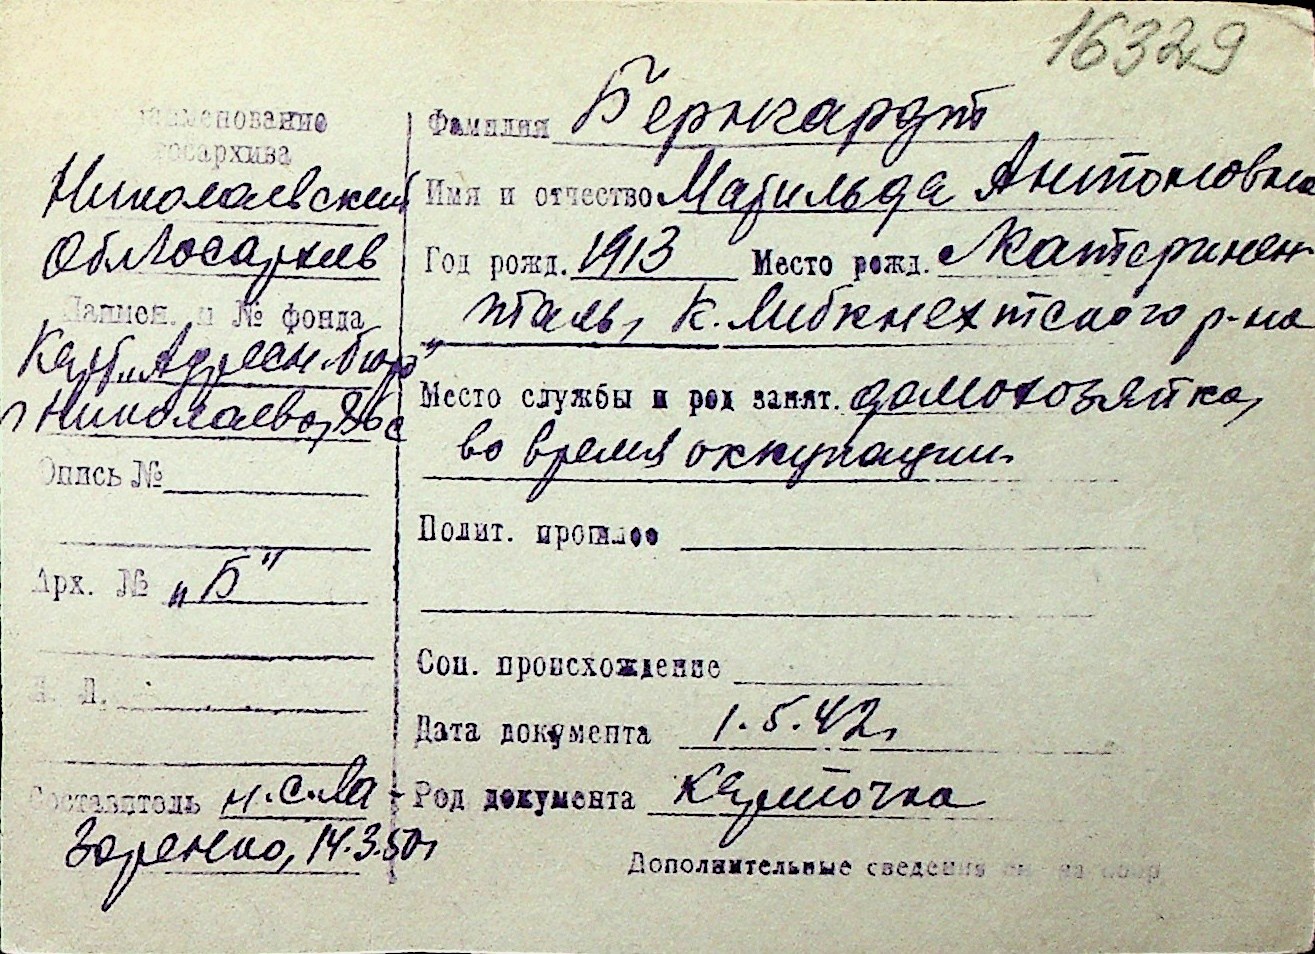 16329
наименование
госархива
Николаевский
Облгосархив
Наимен. и № фонда
Карт. „Адресн. бюро"
г. Николаева,
Опись №
Арх. № „Б"
Л. Л.
Составитель н.с. Ла-
заренко, 14.3.50г
Фамилия Бернгардт
Имя и отчество Матильда Антоновна
Год рожд. 1913 Место рожд. Катеринен-
„ таль, К. Либкнехтского р-на
Место службы и род занят. домохозяйка,
во время оккупации.
Полит. прошлое
Соц. происхождение
Дата документа 1.5.42г
Род документа карточка
Дополнительные сведения см. на обор